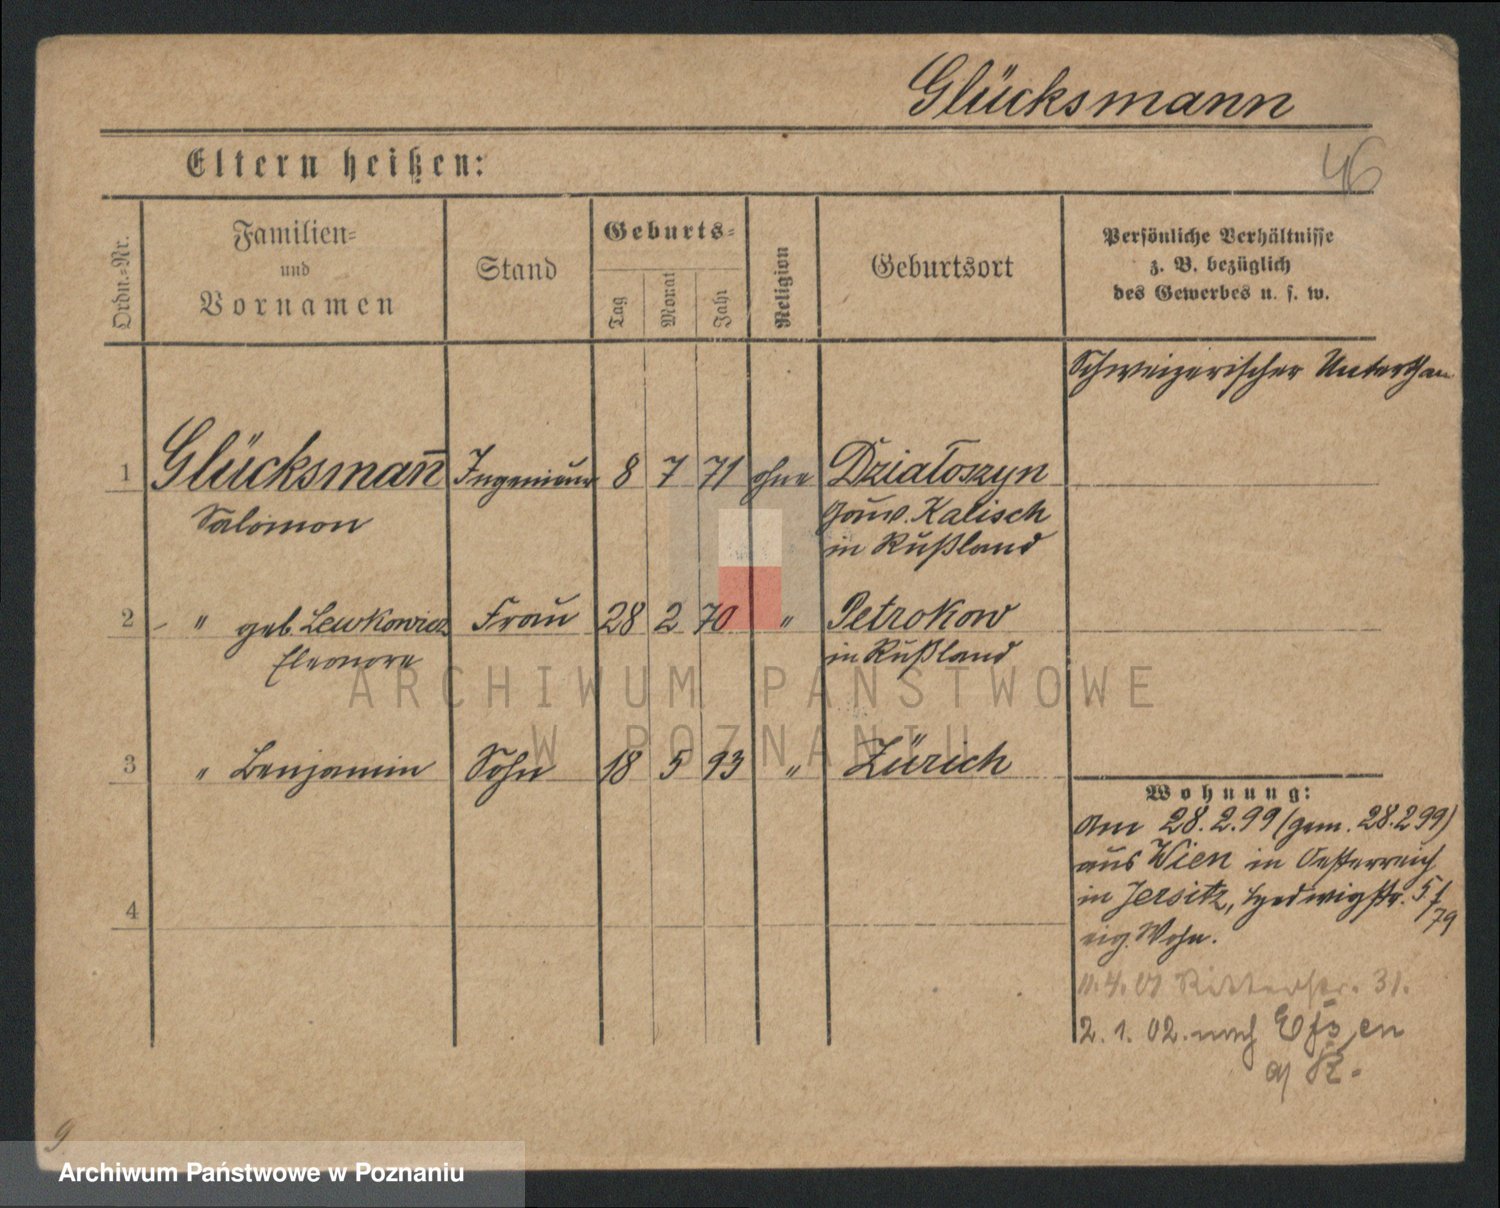 Glücksmann
46
Eltern heißen:
Ordn.-Nr.
Familien-
und
Vornamen
Stand
Geburts-
Tag
Monat
Jahr
Religion
Geburtsort
Persönliche Verhältnisse
z. B. bezüglich
des Gewerbes u. s. w.
Schweizerischer Unterthan
1 Glücksmañ Ingenieur 8 7 71 ohne Działoszyn
Salomon Gouv. Kalisch
in Rußland
2 " geb. Lewkowicz Frau 28 2 70 " Petrokow
Eleonore in Rußland
3 " Benjamin Sohn 18 5 93 " Zürich
4
Wohnung:
Am 28.2.99 (gem. 28.2 99)
aus Wien in Oesterreich
in Jersitz, Hedwigstr. 5 I
/79
eig. Wohn.
11.4.01 Ritterstr. 31.
2.1.02. nach Essen
a/ R.
9
ARCHIWUM PAŃSTWOWE
W POZNANIU
Archiwum Państwowe w Poznaniu